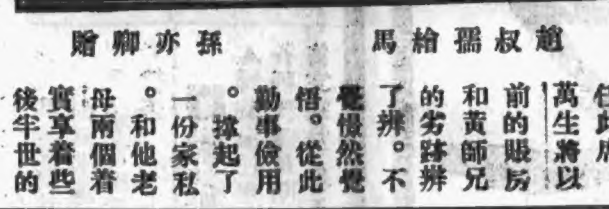 趙叔孺繪馬
孫亦卿贈
萬生將以
前的賬房
和黃師兄
的劣跡辨
了辨。不
覺憬然覺
悟。從此
勤事儉用
。撐起了
一份家私
。和他老
母兩個着
實享着些
後半世的